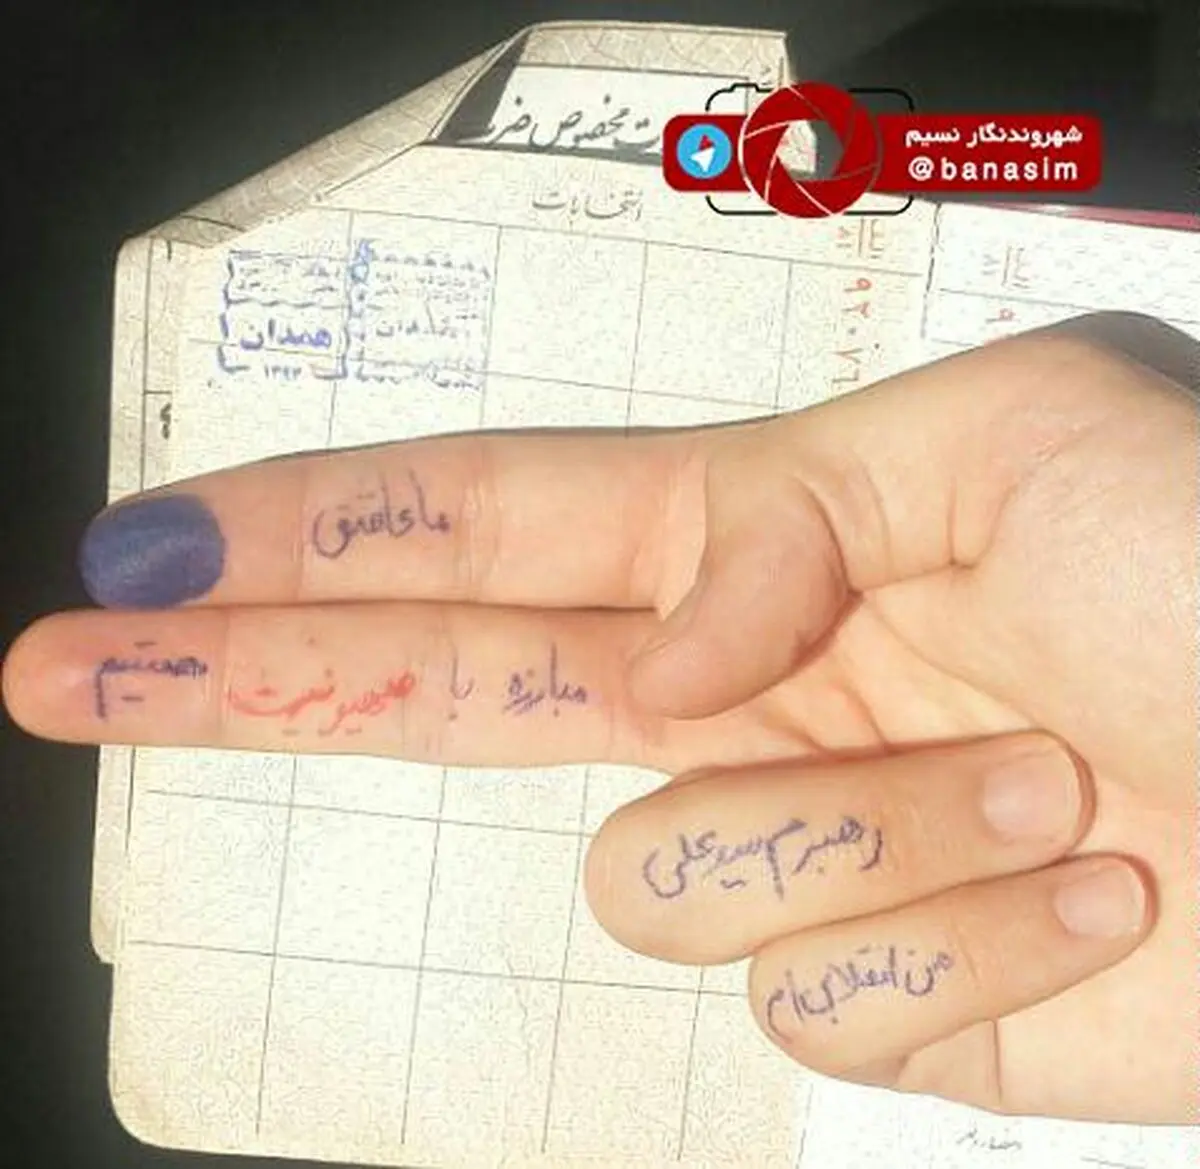 شهروندنگار نسیم
@banasim
مخصوص
انتخابات
همدان
ما عاشق
مبارزه با صهیونیست هستیم
رهبرم سید علی
من انقلابی ام